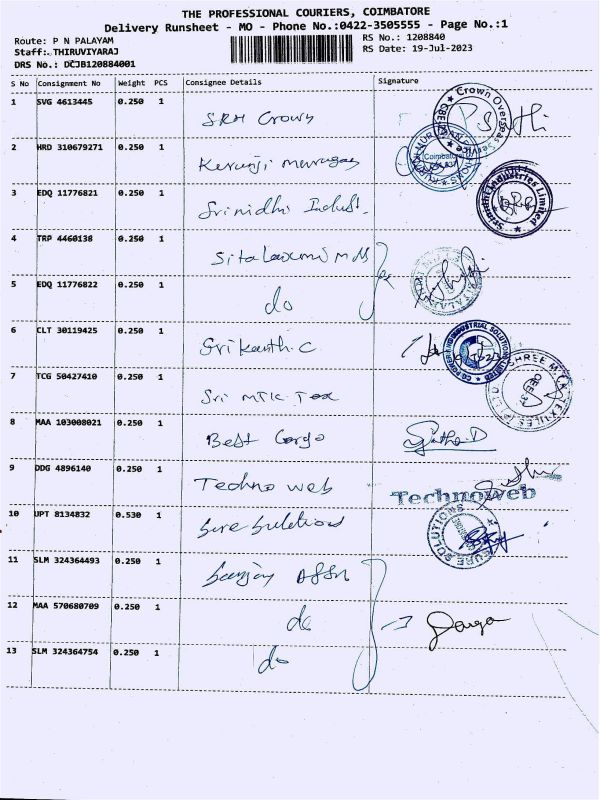 THE PROFESSIONAL COURIERS, COIMBATORE
Delivery Runsheet - MO - Phone No.:0422-3505555 - Page No.:1
Route: P N PALAYAM
RS No.: 1208840
Staff:. THIRUVIYARAJ
RS Date: 19-Jul-2023
DRS No.: DCJB120884001
S No Consignment No Weight PCS Consignee Details Signature
1 SVG 4613445 0.250 1
SRH Crown
Crown Overseas
2 HRD 310679271 0.250 1
Coimbatore
3 EDQ 11776821 0.250 1
Srinidhi Indust.
Srinidhi Industries Limited
4 TRP 4460138 0.250 1
Sitalaxmi M MS
5 EDQ 11776822 0.250 1
do
6 CLT 30119425 0.250 1
Srikanth.C
CG POWER AND INDUSTRIAL SOLUTIONS LIMITED
7 TCG 50427410 0.250 1
Sri MTK Tex
SHREE
8 MAA 103008021 0.250 1
Best Cargo
9 DDG 4896140 0.250 1
Techno web
Technoweb
10 UPT 8134832 0.530 1
Sure Solutions
SURE SOLUTIONS
11 SLM 324364493 0.250 1
Sanjay Assn
12 MAA 570680709 0.250 1
do
13 SLM 324364754 0.250 1
do